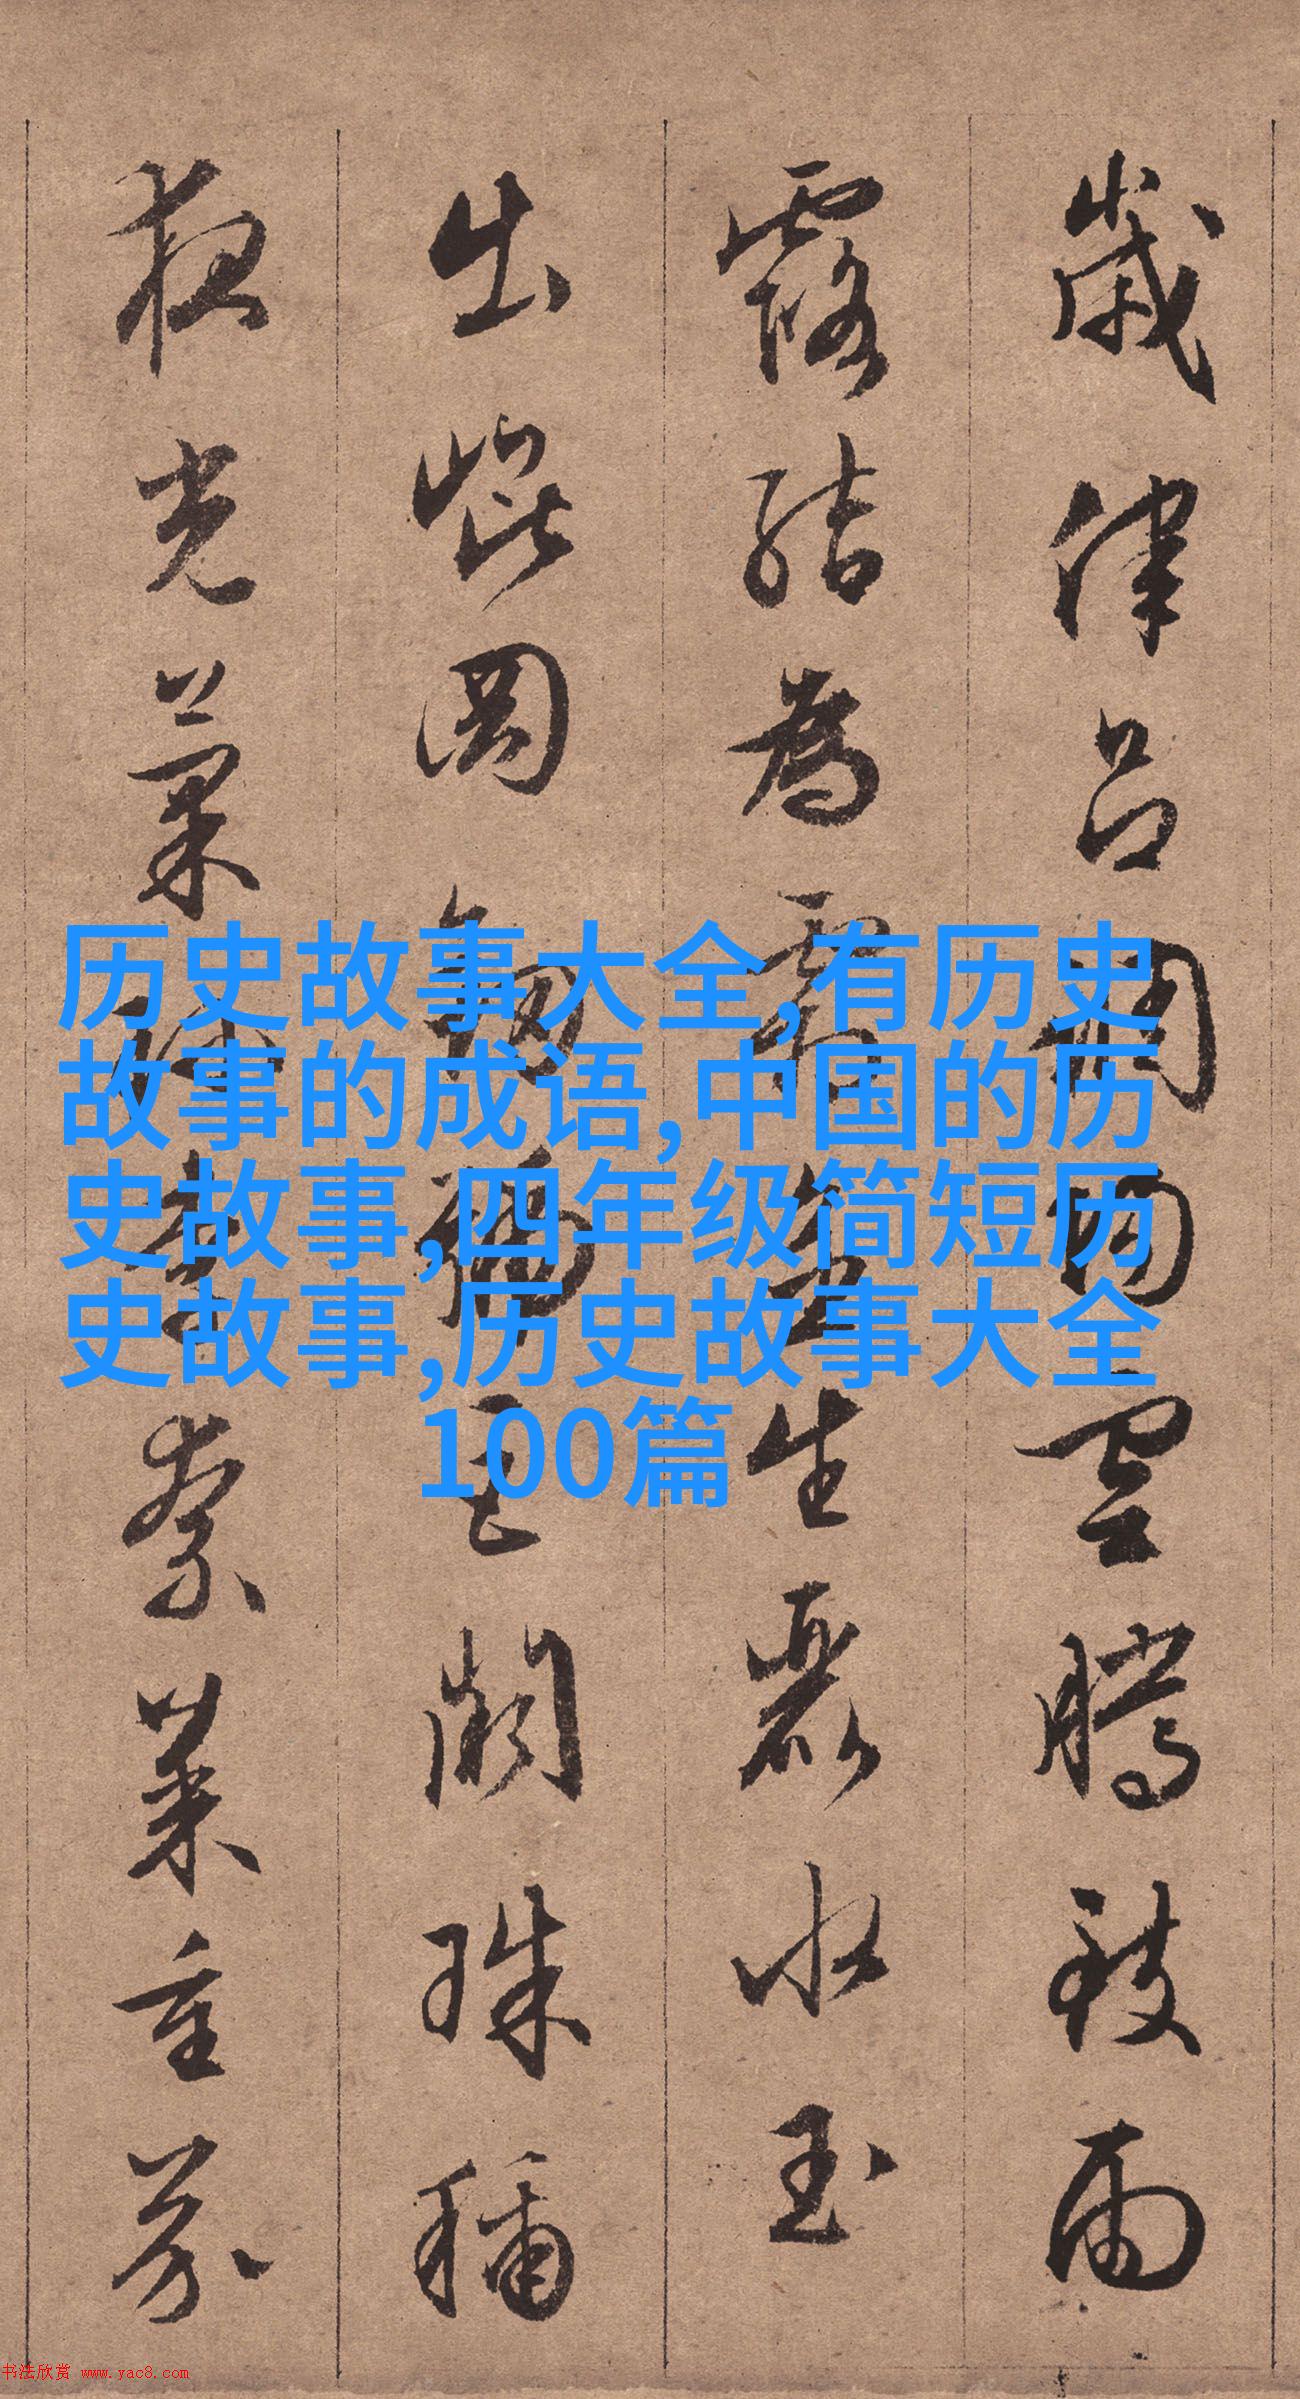 歲律呂調陽雲騰致雨
露結為霜金生麗水玉
出崐岡劍號巨闕珠稱
夜光菓珍李柰菜重芥
历史故事大全,有历史
故事的成语,中国的历
史故事,四年级简短历
史故事,历史故事大全
100篇
书法欣赏 www.yac8.com